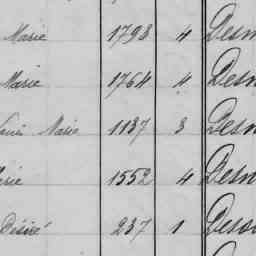 Marie 1793 4 Desm
Marie 1764 4 Desm
Marie 1137 3 Desm
1552 4 Desm
Désiré 237 1 Deso